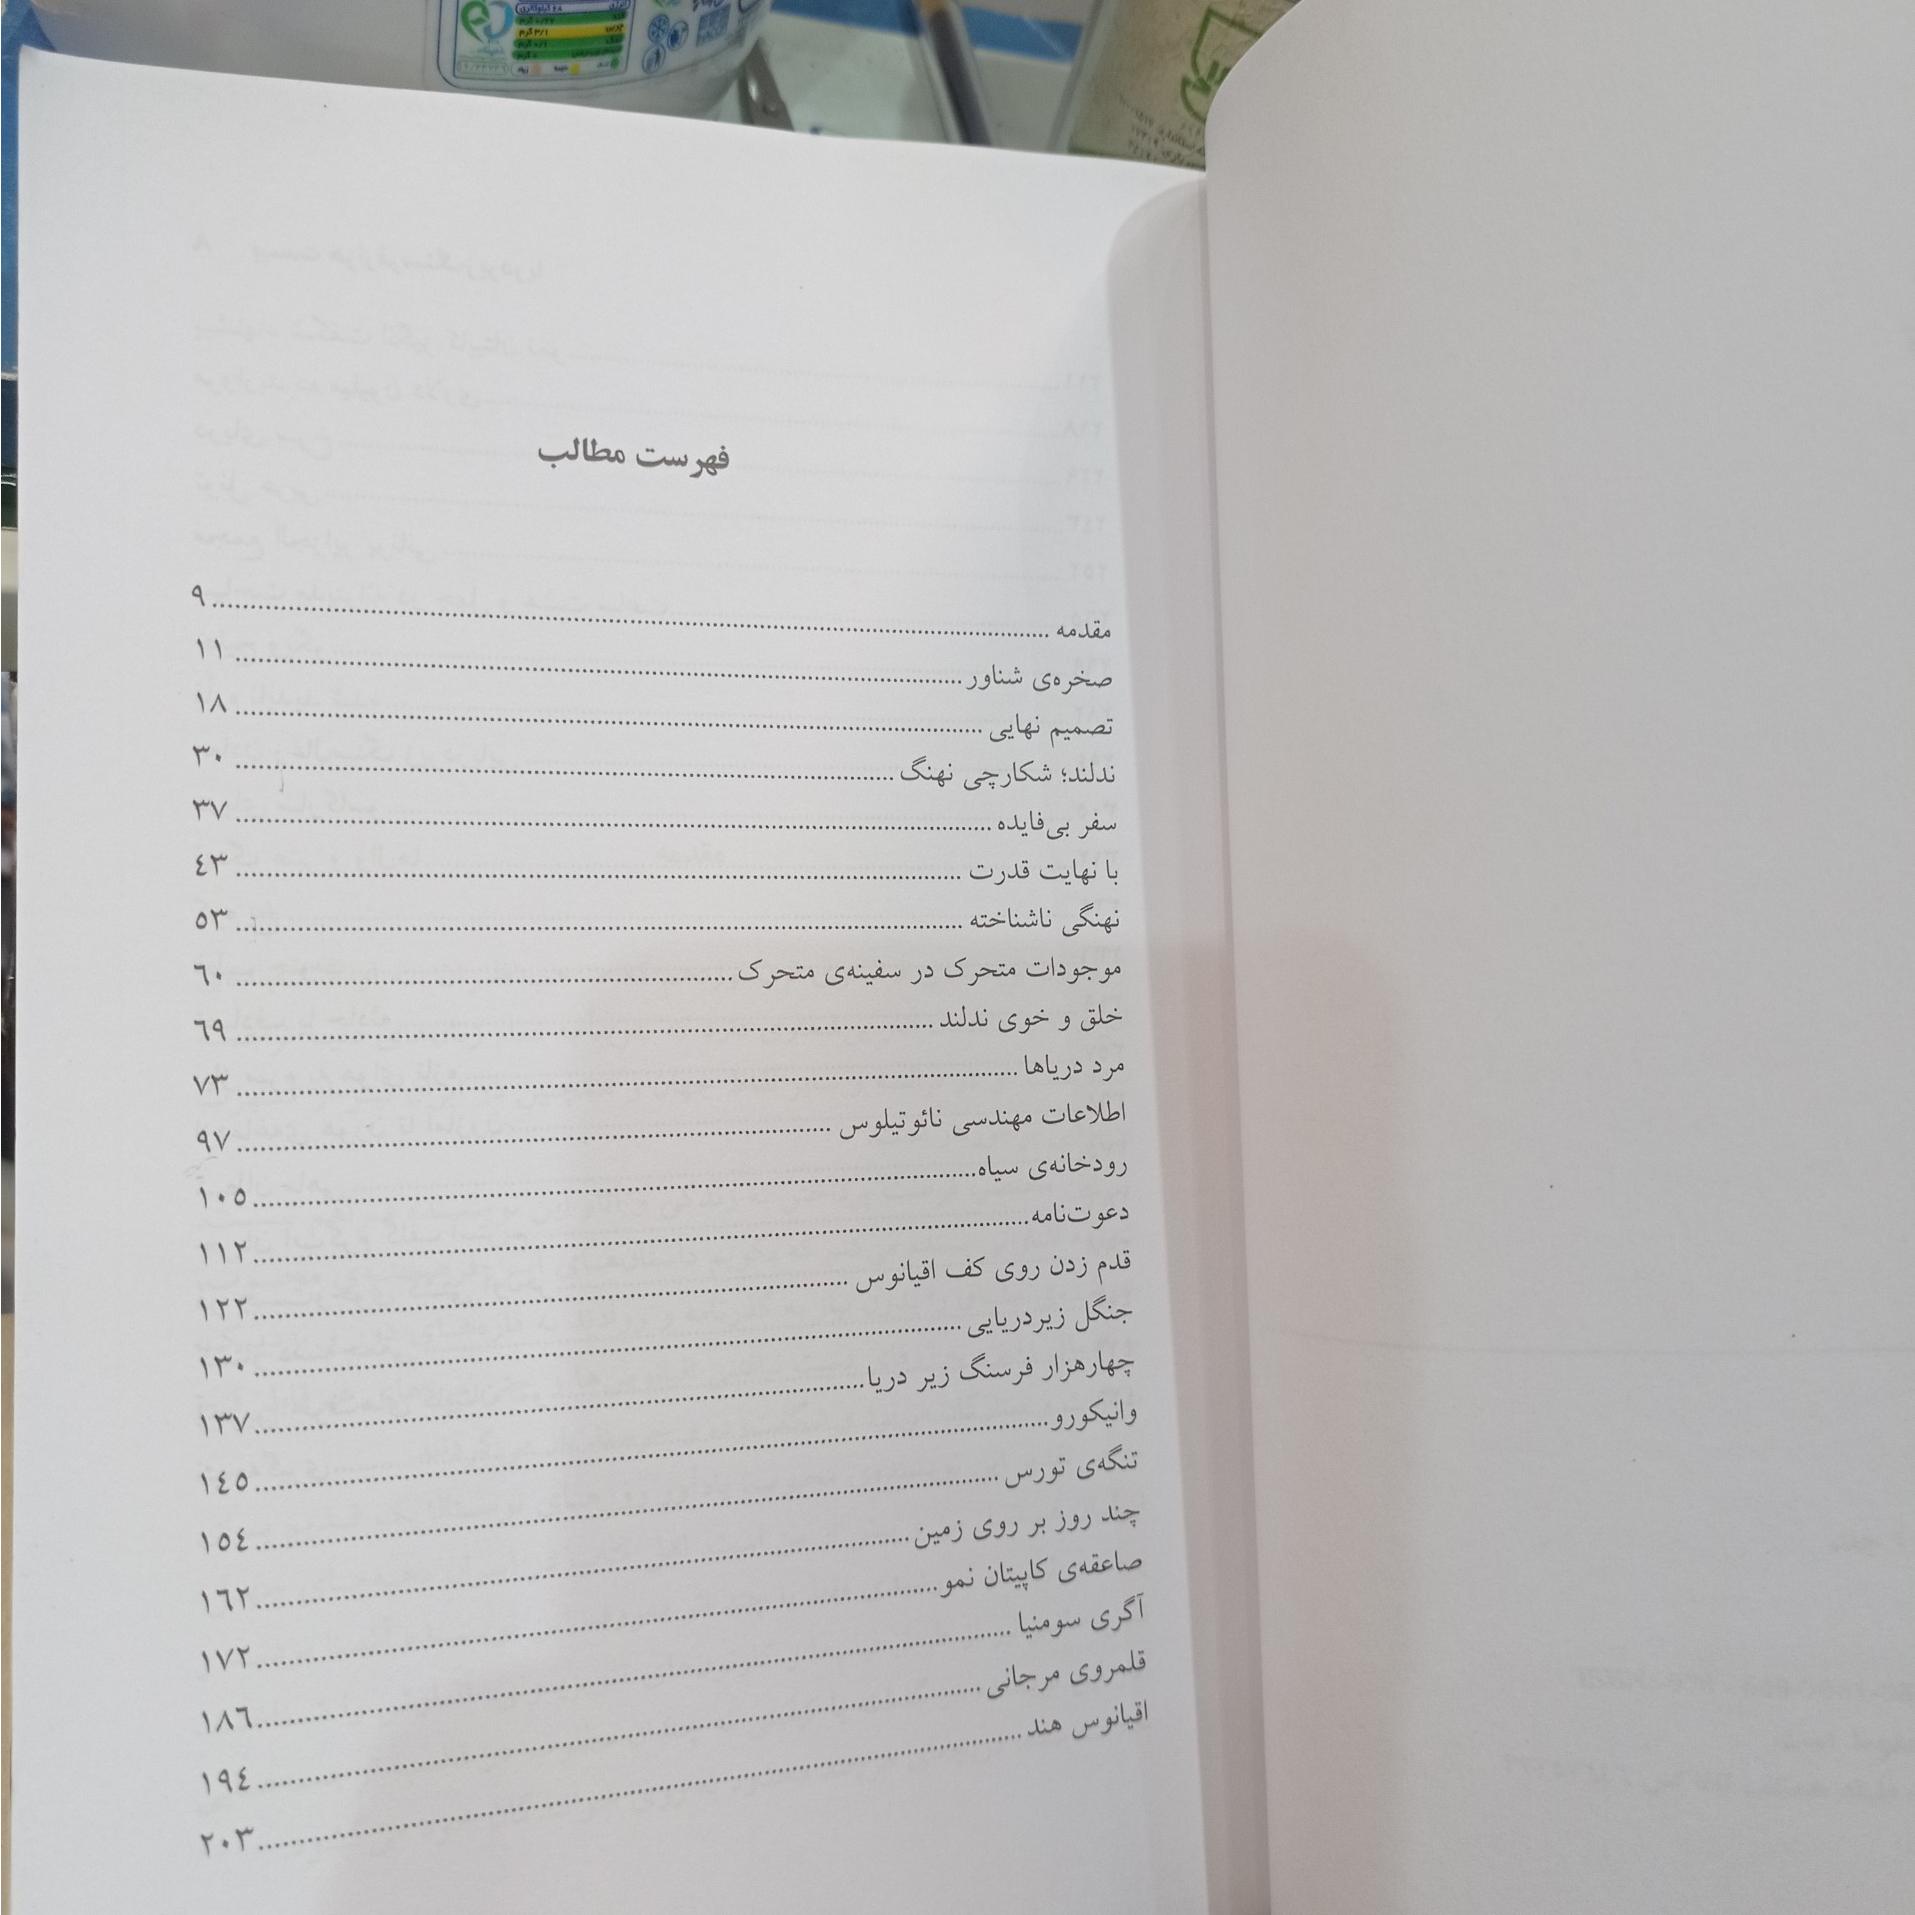 فهرست مطالب
مقدمه ........ ۹
صخره‌ی شناور ........ ۱۱
تصمیم نهایی ........ ۱۸
ندلند؛ شکارچی نهنگ ........ ۳۰
سفر بی‌فایده ........ ۳۷
با نهایت قدرت ........ ٤۳
نهنگی ناشناخته ........ ٥۳
موجودات متحرک در سفینه‌ی متحرک ........ ٦۰
خلق و خوی ندلند ........ ٦۹
مرد دریاها ........ ۷۳
اطلاعات مهندسی نائوتیلوس ........ ۹۷
رودخانه‌ی سیاه ........ ۱۰٥
دعوت‌نامه ........ ۱۱۲
قدم زدن روی کف اقیانوس ........ ۱۲۲
جنگل زیردریایی ........ ۱۳۰
چهارهزار فرسنگ زیر دریا ........ ۱۳۷
وانیکورو ........ ۱٤٥
تنگه‌ی تورس ........ ۱٥٤
چند روز بر روی زمین ........ ۱٦۲
صاعقه‌ی کاپیتان نمو ........ ۱۷۲
آگری سومنیا ........ ۱۸٦
قلمروی مرجانی ........ ۱۹٤
اقیانوس هند ........ ۲۰۳